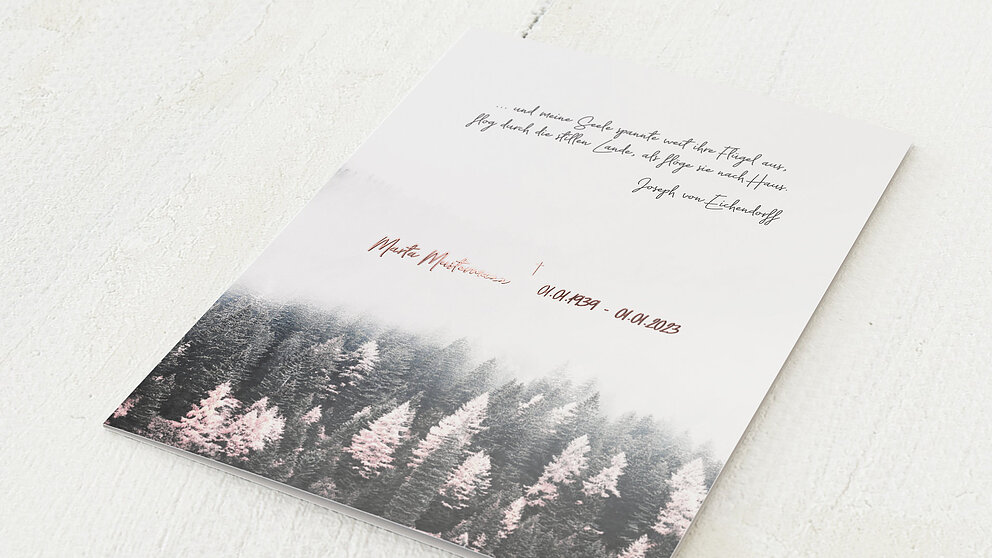 ... und meine Seele spannte weit ihre Flügel aus,
flog durch die stillen Lande, als flöge sie nach Haus.
Joseph von Eichendorff
Marta Musterman
†
01.01.1939 - 01.01.2023